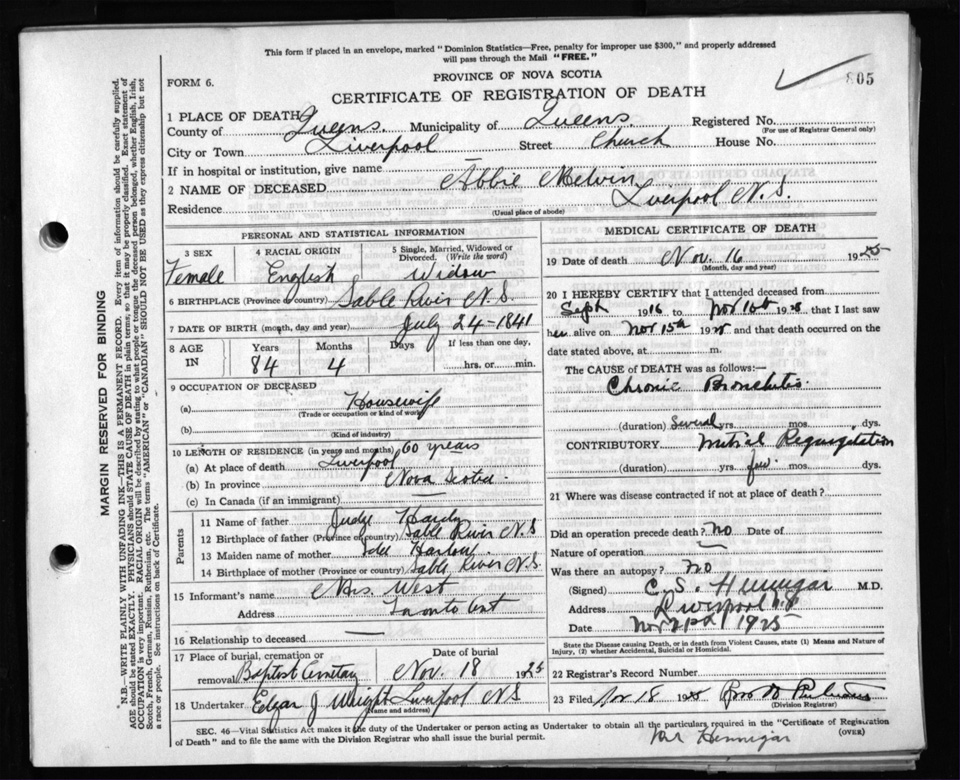 This form if placed in an envelope, marked "Dominion Statistics—Free, penalty for improper use $300," and properly addressed
will pass through the Mail "FREE."
PROVINCE OF NOVA SCOTIA
805
FORM 6.
CERTIFICATE OF REGISTRATION OF DEATH
1 PLACE OF DEATH
County of Queens. Municipality of Queens. Registered No.
(For use of Registrar General only)
City or Town Liverpool Street Church House No.
If in hospital or institution, give name —
2 NAME OF DECEASED Abbie Melvin
Residence Liverpool N.S.
(Usual place of abode)
MARGIN RESERVED FOR BINDING
N.B.—WRITE PLAINLY WITH UNFADING INK—THIS IS A PERMANENT RECORD. Every item of information should be carefully supplied.
AGE should be stated EXACTLY. PHYSICIANS should STATE CAUSE OF DEATH in plain terms, so that it may be properly classified. Exact statement of
OCCUPATION is very important. RACIAL ORIGIN will be described by stating to what people or tongue the deceased person belonged, whether English, Irish,
Scotch, French, German, Russian, Ruthenian, etc. The terms "AMERICAN" or "CANADIAN" SHOULD NOT BE USED as they express citizenship but not
a race or people. See instructions on back of Certificate.
PERSONAL AND STATISTICAL INFORMATION
3 SEX 4 RACIAL ORIGIN 5 Single, Married, Widowed or
Divorced. (Write the word)
Female English Widow
6 BIRTHPLACE (Province or country) Sable River N.S.
7 DATE OF BIRTH (month, day and year) July 24-1841
8 AGE IN Years Months Days If less than one day,
84 4 hrs. or min.
9 OCCUPATION OF DECEASED
(a) Housewife
(Trade or occupation or kind of work)
(b)
(Kind of industry)
10 LENGTH OF RESIDENCE (in years and months)
(a) At place of death Liverpool 60 years
(b) In province Nova Scotia.
(c) In Canada (if an immigrant) —
Parents
11 Name of father Judge Hardy
12 Birthplace of father (Province or country) Sable River N.S
13 Maiden name of mother Harlow.
14 Birthplace of mother (Province or country) Sable River N.S.
15 Informant's name Mrs. West
Address Toronto Ont
16 Relationship to deceased —
17 Place of burial, cremation or Date of burial
removal Baptist Cemetery Nov. 18 192
18 Undertaker Edgar J Wright Liverpool N.S
(Name and address)
MEDICAL CERTIFICATE OF DEATH
19 Date of death Nov. 16 1925
(Month, day and year)
20 I HEREBY CERTIFY that I attended deceased from
Sept 1916 to Nov 16th 1925 that I last saw
her alive on Nov 15th 1925 and that death occurred on the
date stated above, at m.
The CAUSE of DEATH was as follows:—
Chronic Bronchitis.
(duration) Several yrs. mos. dys.
CONTRIBUTORY Mitral Regurgitation
(duration) yrs. few mos. dys.
21 Where was disease contracted if not at place of death?
Did an operation precede death? No Date of
Nature of operation —
Was there an autopsy? No
(Signed) C. S. Hennigar M.D.
Address Liverpool N.S
Date Nov 1925
State the Disease causing Death, or in death from Violent Causes, state (1) Means and Nature of
Injury, (2) whether Accidental, Suicidal or Homicidal.
22 Registrar's Record Number
23 Filed Nov 18 1925
(Division Registrar)
SEC. 46—Vital Statistics Act makes it the duty of the Undertaker or person acting as Undertaker to obtain all the particulars required in the "Certificate of Registration
of Death" and to file the same with the Division Registrar who shall issue the burial permit.
(OVER)
Hennigar